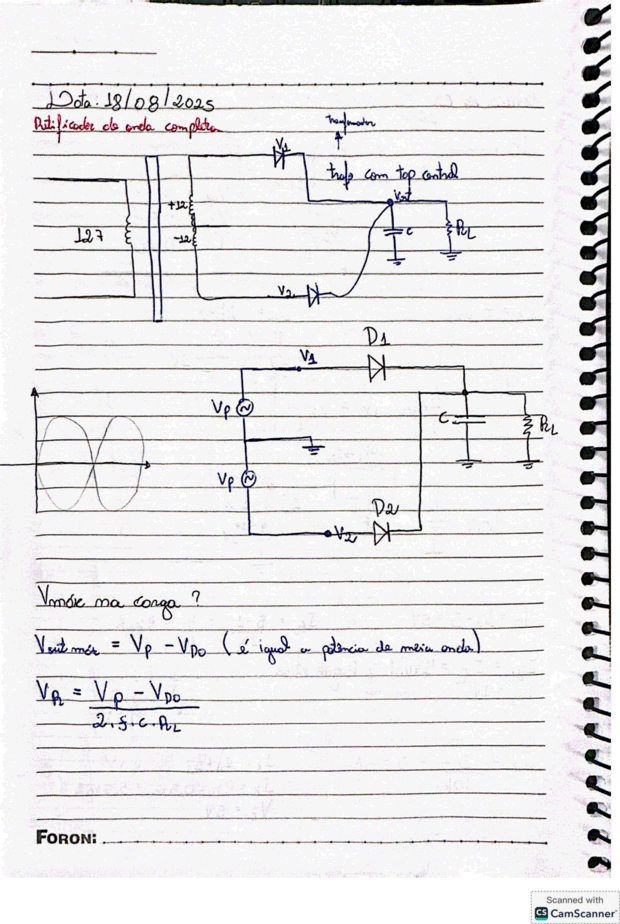 Data: 18/08/2025
Retificador de onda completa
transformador
trafo com top control
V1
Vout
+12
-12
127
C
RL
V2
D1
V1
Vp
C
RL
Vp
D2
V2
Vmáx na carga ?
Vout máx = Vp - VDo ( é igual a potência de meia onda)
VR = Vp - VDo
2. f. c. RL
FORONI
Scanned with
CS CamScanner